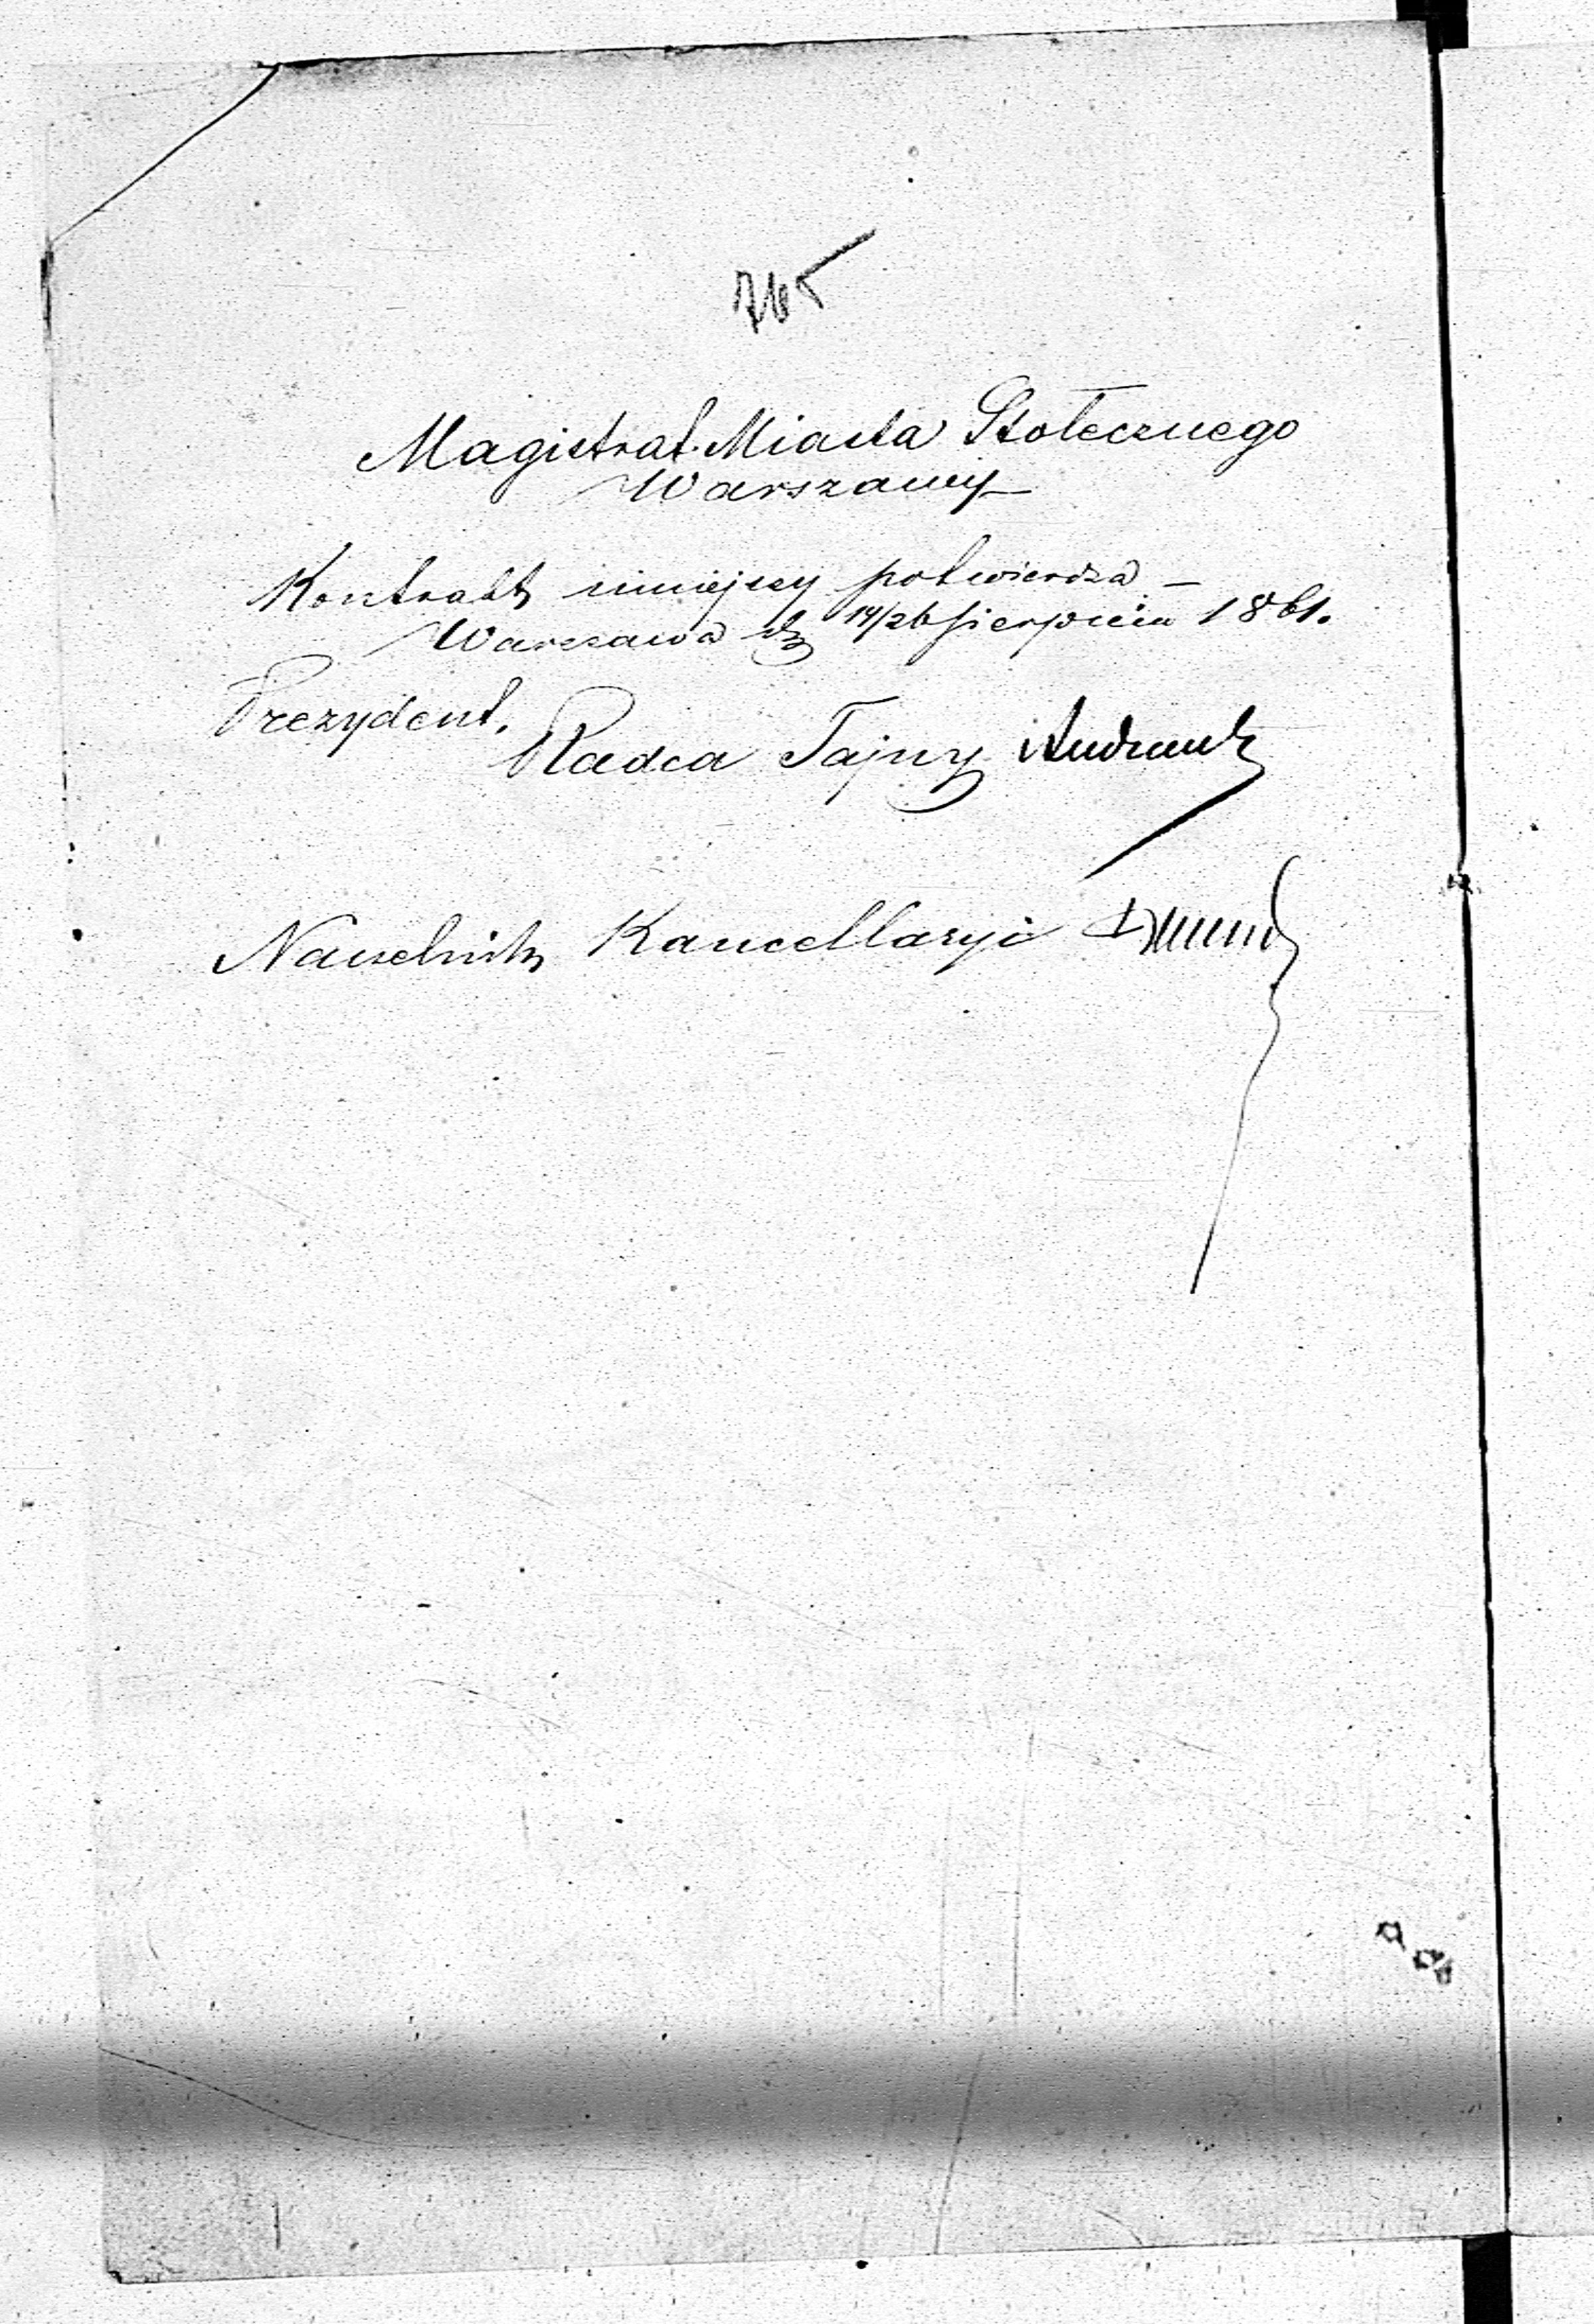 765
Magistrat Miasta Stołecznego
Warszawy
Kontrakt niniejszy potwierdza –
Warszawa d. 14/26 Sierpnia 1861.
Prezydent.
Radca Tajny Andrault
Naczelnik Kancellaryi